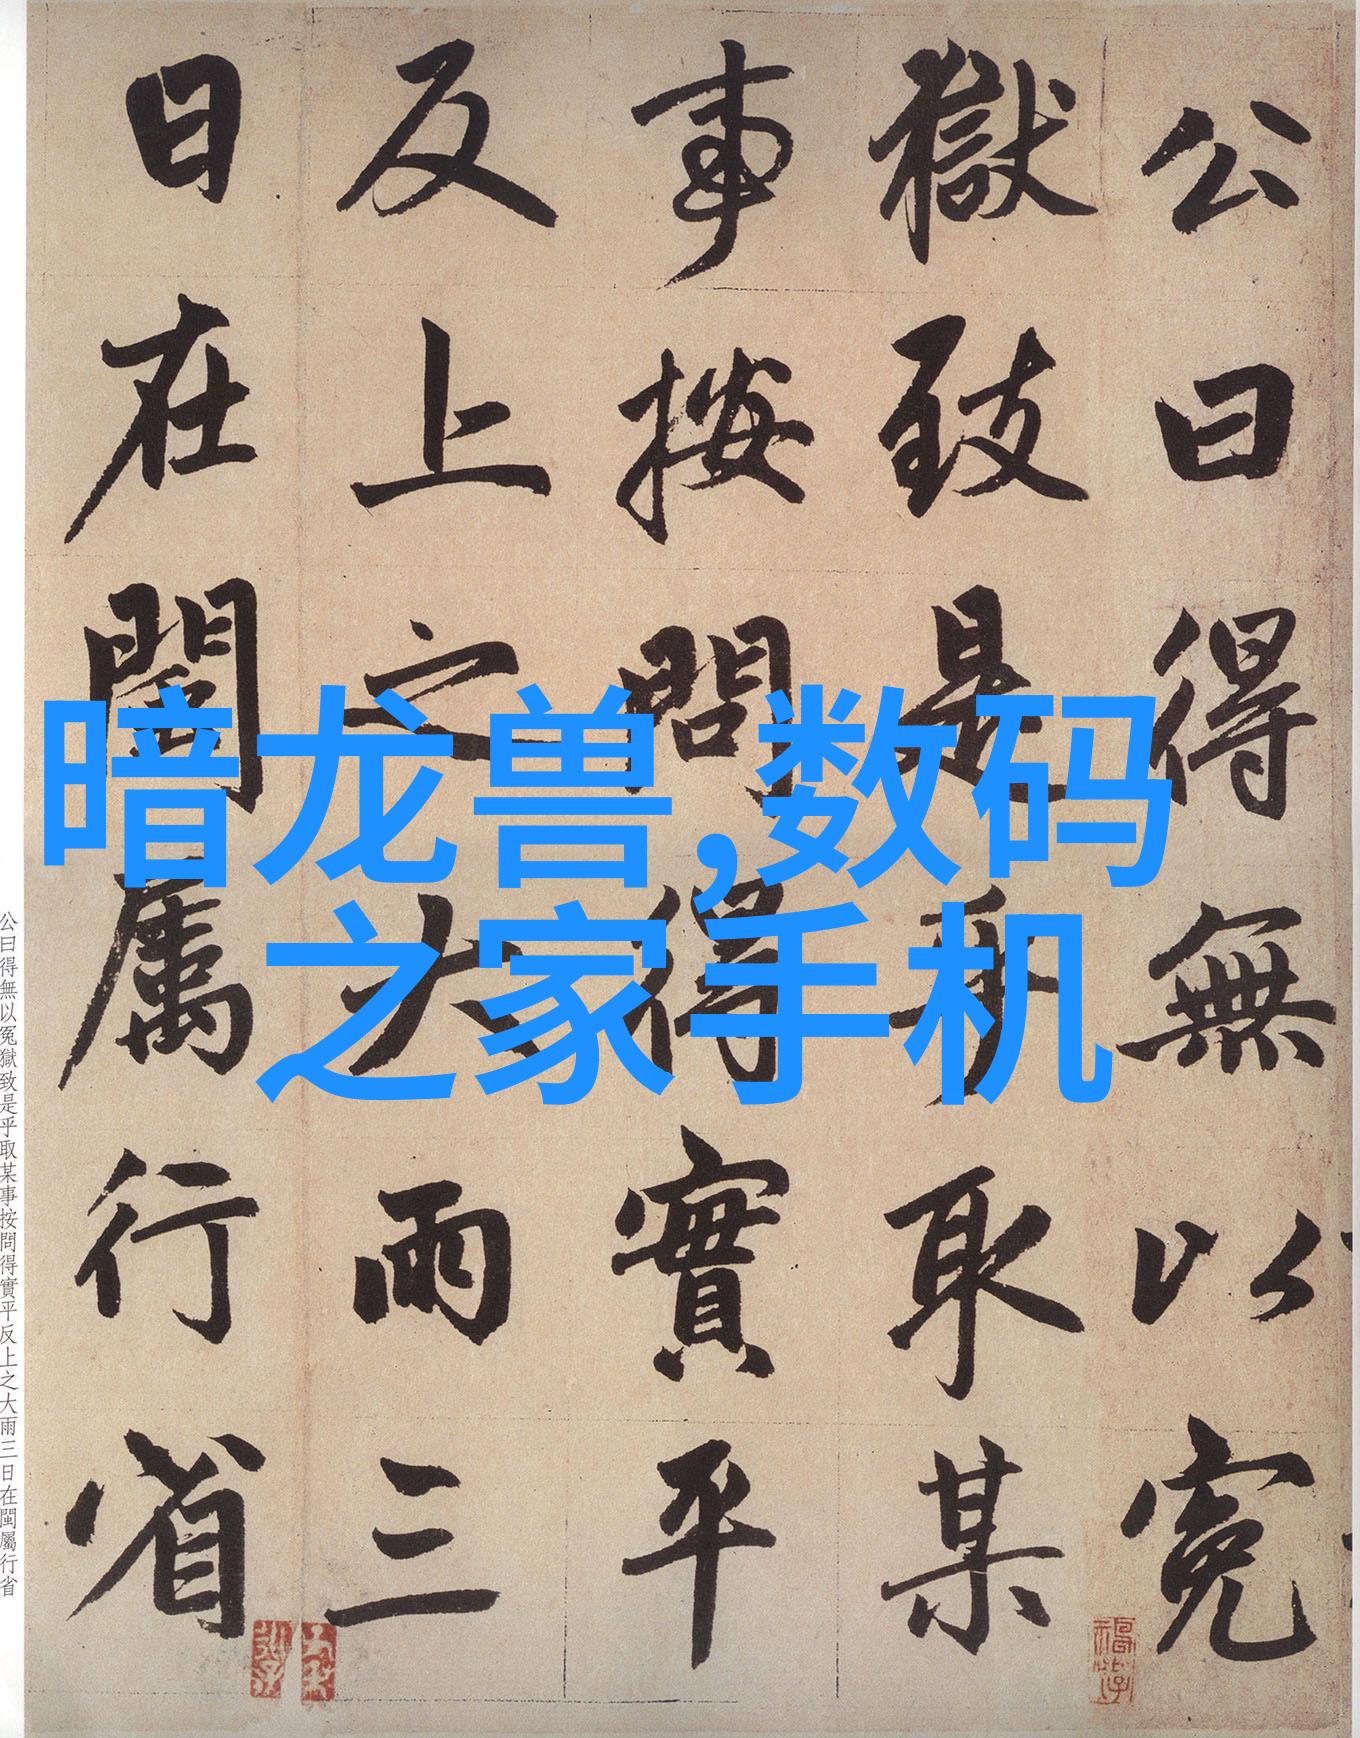 公曰得無以冤
獄致是乎取某
事按問得實平
反上之大雨三
日在閩屬行省
暗龙兽,数码
之家手机
公曰得無以冤獄致是乎取某事按問得實平反上之大雨三日在閩屬行省